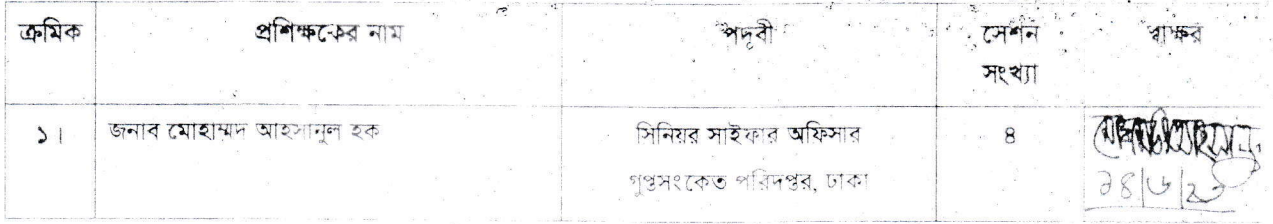 ক্রমিক প্রশিক্ষকের নাম পদবী সেশন সংখ্যা স্বাক্ষর
১। জনাব মোহাম্মদ আহসানুল হক সিনিয়র সাইফার অফিসার ৪
গুপ্তসংকেত পরিদপ্তর, ঢাকা